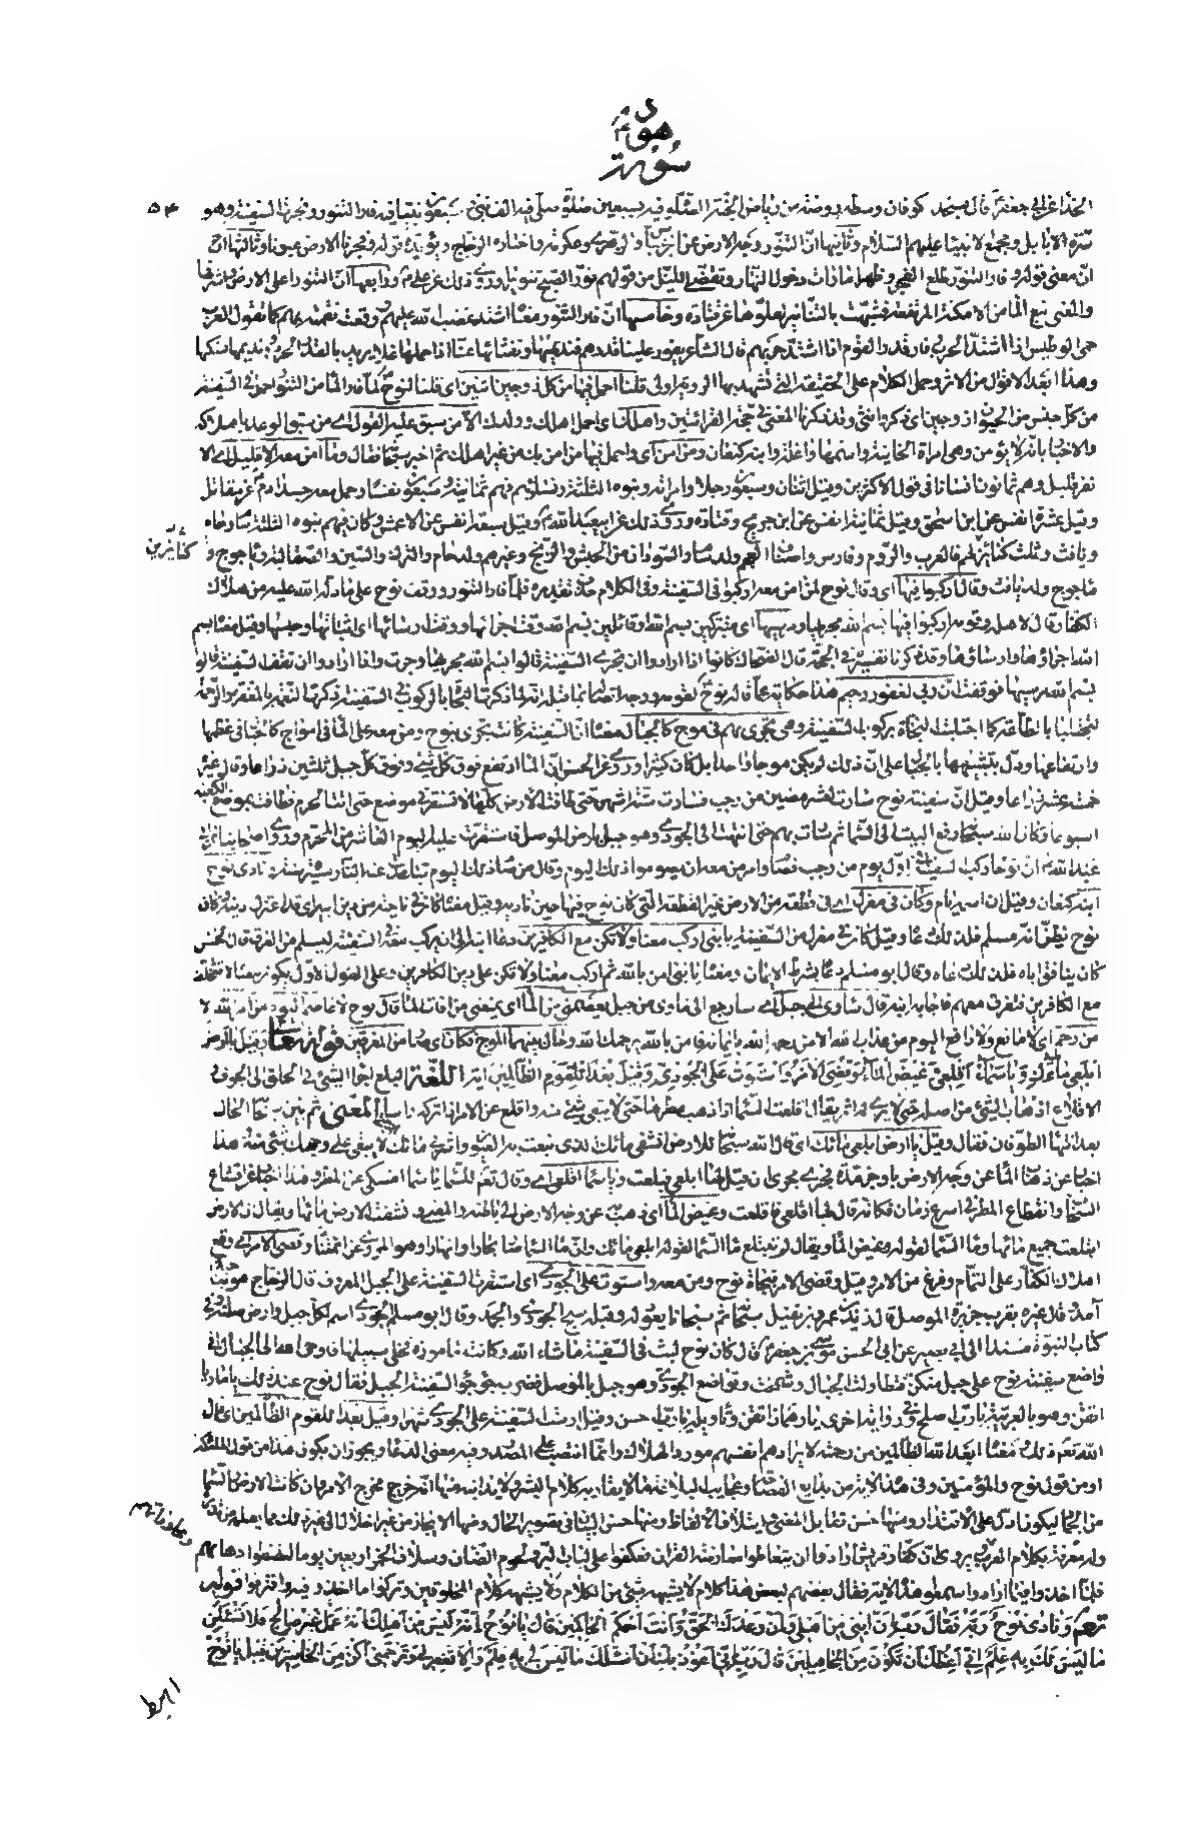 سورة هود
٥٤
الحذاء عن ابي جعفر قال مسجد كوفان وسطه روضة من رياض الجنة الصلوة فيه بسبعين صلوة صلى فيه الف نبي وسبعون نبيا فيه فار التنور ونجرت السفينة وهو
سرة الابابل ومجمع الانبياء عليهم السلام وثانيها ان التنور وجه الارض عن ابن عباس والزهري وعكرمة واختاره الزجاج ويؤيده قوله وفجرنا الارض عيونا وثالثها ان
ان معنى قوله وفار التنور طلع الفجر وظهرت امارات دخول النهار وتقضى الليل من قولهم نور الصبح تنويرا وروي ذلك عن علي ورابعها ان التنور اعلى الارض واشرفها
والمعنى نبع الماء من الامكنة المرتفعة فشبهت بالتنانير لعلوها عن قتادة وخامسها ان فار التنور معناه اشتد غضب الله عليهم ووقعت نقمته بهم كما تقول العرب
حمي الوطيس اذا اشتد الحرب وفار قدر القوم اذا اشتد حربهم قال الشاعر يفور علينا قدرهم فنديمها ونفثأها عنا اذا حميها غلا يريد بالقدر الحرب ونديمها نسكنها
وهذا ابعد الاقوال من الاثر وحمل الكلام على الحقيقة التي تشهد بها الرواية اولى قلنا احمل فيها من كل زوجين اثنين اي قلنا لنوح لما فار الماء من التنور احمل في السفينة
من كل جنس من الحيوان زوجين اي ذكر وانثى وقد ذكرنا المعنى في حجة القراءتين واهلك اي احمل اهلك وولدك الا من سبق عليه القول اي من سبق الوعد باهلاكه
والاخبار بانه لا يؤمن وهي امراة الخاينة واسمها واغلة وابنه كنعان ومن آمن اي واحمل فيها من آمن بك من غير اهلك ثم اخبر سبحانه فقال وما آمن معه الا قليل اي الا
نفر قليل وهم ثمانون انسانا في قول الاكثرين وقيل اثنان وسبعون رجلا وامراة وبنوه الثلثة ونساؤهم فهم ثمانية وسبعون نفسا وحمل معه جسد ادم عن مقاتل
وقيل عشرة انفس عن ابن اسحق وقيل ثمانية انفس عن ابن جريج وقتادة وروي ذلك عن ابي عبد الله وقيل سبعة انفس عن الاعمش وكان فيهم بنوه الثلثة سام وحام
ويافث وثلث كنائن لهم فالعرب والروم وفارس واصناف العجم ولد سام والسودان من الحبش والزنج وغيرهم ولد حام والترك والصين والصقالبة وياجوج و
كنائن
ماجوج ولد يافث وقال اركبوا فيها اي وقال نوح لمن آمن معه اركبوا في السفينة وفي الكلام حذف تقديره فلما فار التنور ووقف نوح على ما دله الله عليه من هلاك
الكفار قال لاهله وقومه اركبوا فيها بسم الله مجريها ومرسيها اي متبركين بسم الله او قائلين بسم الله وقت اجرائها ووقت ارسائها اي اثباتها وحبسها وقيل معناه بسم
الله اجراؤها وارساؤها وقد ذكرنا تفسيره في الحجة قال الضحاك كانوا اذا ارادوا ان تجري السفينة قالوا بسم الله مجريها فجرت واذا ارادوا ان تقف السفينة قالوا
بسم الله مرسيها فوقفت ان ربي لغفور رحيم هذا حكاية عما قاله نوح لقومه ووجه اتصاله بما قبله انه لما ذكرت النجاة بالركوب في السفينة ذكرت النعمة بالمغفرة والرحمة
لتجتلبا بالطاعة كما اجتلبت النجاة بركوب السفينة وهي تجري بهم في موج كالجبال معناه ان السفينة كانت تجري بنوح ومن معه على الماء في امواج كالجبال في عظمها
وارتفاعها ودل بتشبيهها بالجبال على ان ذلك لم يكن موجا واحدا بل كان كثيرا وروي عن الحسن ان الماء ارتفع فوق كل شيء وفوق كل جبل ثلثين ذراعا وقال غيره
خمسة عشر ذراعا وقيل ان سفينة نوح سارت لعشر مضين من رجب فسارت ستة اشهر حتى طافت الارض كلها لا تستقر في موضع حتى اتت الحرم فطافت بموضع الكعبة
اسبوعا وكان الله سبحانه رفع البيت الى السماء ثم سارت بهم حتى انتهت الى الجودي وهو جبل بارض الموصل فاستقرت عليه اليوم العاشر من المحرم وروى اصحابنا عن ابي
عبد الله ان نوحا ركب السفينة اول يوم من رجب فصام وامر من معه ان يصوموا ذلك اليوم وقال من صام ذلك اليوم تباعدت عنه النار مسيرة سنة ونادى نوح
ابنه كنعان وقيل ان اسمه يام وكان في معزل اي في قطعة من الارض غير القطعة التي كان نوح فيها حين ناداه وقيل معناه كان في ناحية من دين ابيه اي قد اعتزل دينه وكان
نوح يظن انه مسلم فلذلك دعاه وقيل كان في معزل من السفينة يا بني اركب معنا ولا تكن مع الكافرين دعا ابنه الى ان يركب معه في السفينة ليسلم من الغرق قال الحسن
كان ينافق اباه فلذلك دعاه وقال ابو مسلم دعاه بشرط الايمان ومعناه يا بني آمن بالله ثم اركب معنا ولا تكن على دين الكافرين وعلى القول الاول يكون معناه لا تتخلف
مع الكافرين فتغرق معهم فاجابه ابنه قال سآوي الى جبل اي سارجع الى ماوى من جبل يعصمني من الماء اي يمنعني من افات الماء قال نوح لا عاصم اليوم من امر الله الا
من رحم اي لا مانع ولا دافع اليوم من عذاب الله الا من رحمه الله بايمانه فآمن بالله يرحمك الله وحال بينهما الموج فكان اي فصار من المغرقين قوله تعالى وقيل يا ارض
ابلعي ماءك ويا سماء اقلعي وغيض الماء وقضي الامر واستوت على الجودي وقيل بعدا للقوم الظالمين اية اللغة البلع اجراء الشيء في الحلق الى الجوف و
الاقلاع اذهاب الشيء من اصله حتى لا يرى له اثر يقال اقلعت السماء اذا ذهب مطرها حتى لا يبقى شيء منه واقلع عن الامر اذا تركه راسا المعنى ثم بين سبحانه الحال
بعد انتهاء الطوفان فقال وقيل يا ارض ابلعي ماءك اي قال الله سبحانه للارض انشفي ماءك الذي نبعت به العيون واشربي ماءك حتى لا يبقى على وجهك شيء منه وهذا
اخبار عن ذهاب الماء عن وجه الارض باوجز مدة فجرى مجرى ان قيل لها ابلعي فبلعت ويا سماء اقلعي اي وقال تعم للسماء يا سماء امسكي عن المطر وهذا اخبار عن اقشاع
السحاب وانقطاع المطر في اسرع زمان فكانه قال لها اقلعي فاقلعت وغيض الماء اي ذهب عن وجه الارض الى باطنه والمعنى ونشفت الارض ماءها ويقال ان الارض
ابتلعت جميع مائها وماء السماء لقوله وغيض الماء ويقال لم تبتلع ماء السماء لقوله ابلعي ماءك وان ماء السماء صار بحارا وانهارا وهو المروي عن ائمتنا وقضي الامر اي وقع
اهلاك الكفار على التمام وفرغ من الامر وقيل وقضي الامر بنجاة نوح ومن معه واستوت على الجودي اي استقرت السفينة على الجبل المعروف قال الزجاج هو بناحية
آمد وقال غيره بقرب جزيرة الموصل قال زيد بن عمرو بن نفيل سبحانه ثم سبحانا يعود له وقبله سبح الجودي والجمد وقال ابو مسلم الجودي اسم لكل جبل وارض صلبة وفي
كتاب النبوة مسندا الى ابي بصير عن ابي الحسن موسى بن جعفر قال كان نوح لبث في السفينة ما شاء الله وكانت مامورة فخلى سبيلها فاوحى الله الى الجبال اني
واضع سفينة نوح على جبل منكن فتطاولت الجبال وشمخت وتواضع الجودي وهو جبل بالموصل فضرب جؤجؤ السفينة الجبل فقال نوح عند ذلك يا ماريا
اتقن وهو بالعربية يا رب اصلح وفي رواية اخرى يا رهمان اتقن وتاويله يا رب احسن وقيل ارست السفينة على الجودي شهرا وقيل بعدا للقوم الظالمين اي قال
الله تعم ذلك ومعناه ابعد الله الظالمين من رحمته لايرادهم انفسهم مورد الهلاك وانما انتصب على المصدر وفيه معنى الدعاء ويجوز ان يكون هذا من قول الملائكة
او من قول نوح والمؤمنين وفي هذه الاية من بدايع الفصاحة وعجايب البلاغة ما لا يقاربه كلام البشر ولا يدانيه منها انه خرج مخرج الامر وان كانت الارض والسماء
من الجماد ليكون ادل على الاقتدار ومنها حسن تقابل المعنى وايتلاف الالفاظ ومنها حسن البيان في تصوير الحال ومنها الايجاز من غير اخلال الى غير ذلك مما يعلمه من تدبره
وله معرفة بكلام العرب ويروى ان كفار قريش ارادوا ان يتعاطوا معارضة القران فعكفوا على لباب البر ولحوم الضان وسلاف الخمر اربعين يوما لتصفوا اذهانهم
فلما اخذوا فيما ارادوا وسمعوا هذه الاية فقال بعضهم لبعض هذا كلام لا يشبهه شيء من الكلام ولا يشبه كلام المخلوقين وتركوا ما اخذوا فيه وافترقوا قوله
تعم ونادى نوح ربه فقال رب ان ابني من اهلي وان وعدك الحق وانت احكم الحاكمين قال يا نوح انه ليس من اهلك انه عمل غير صالح فلا تسئلن
ما ليس لك به علم اني اعظك ان تكون من الجاهلين قال رب اني اعوذ بك ان اسئلك ما ليس لي به علم والا تغفر لي وترحمني اكن من الخاسرين قيل يا نوح
اهبط